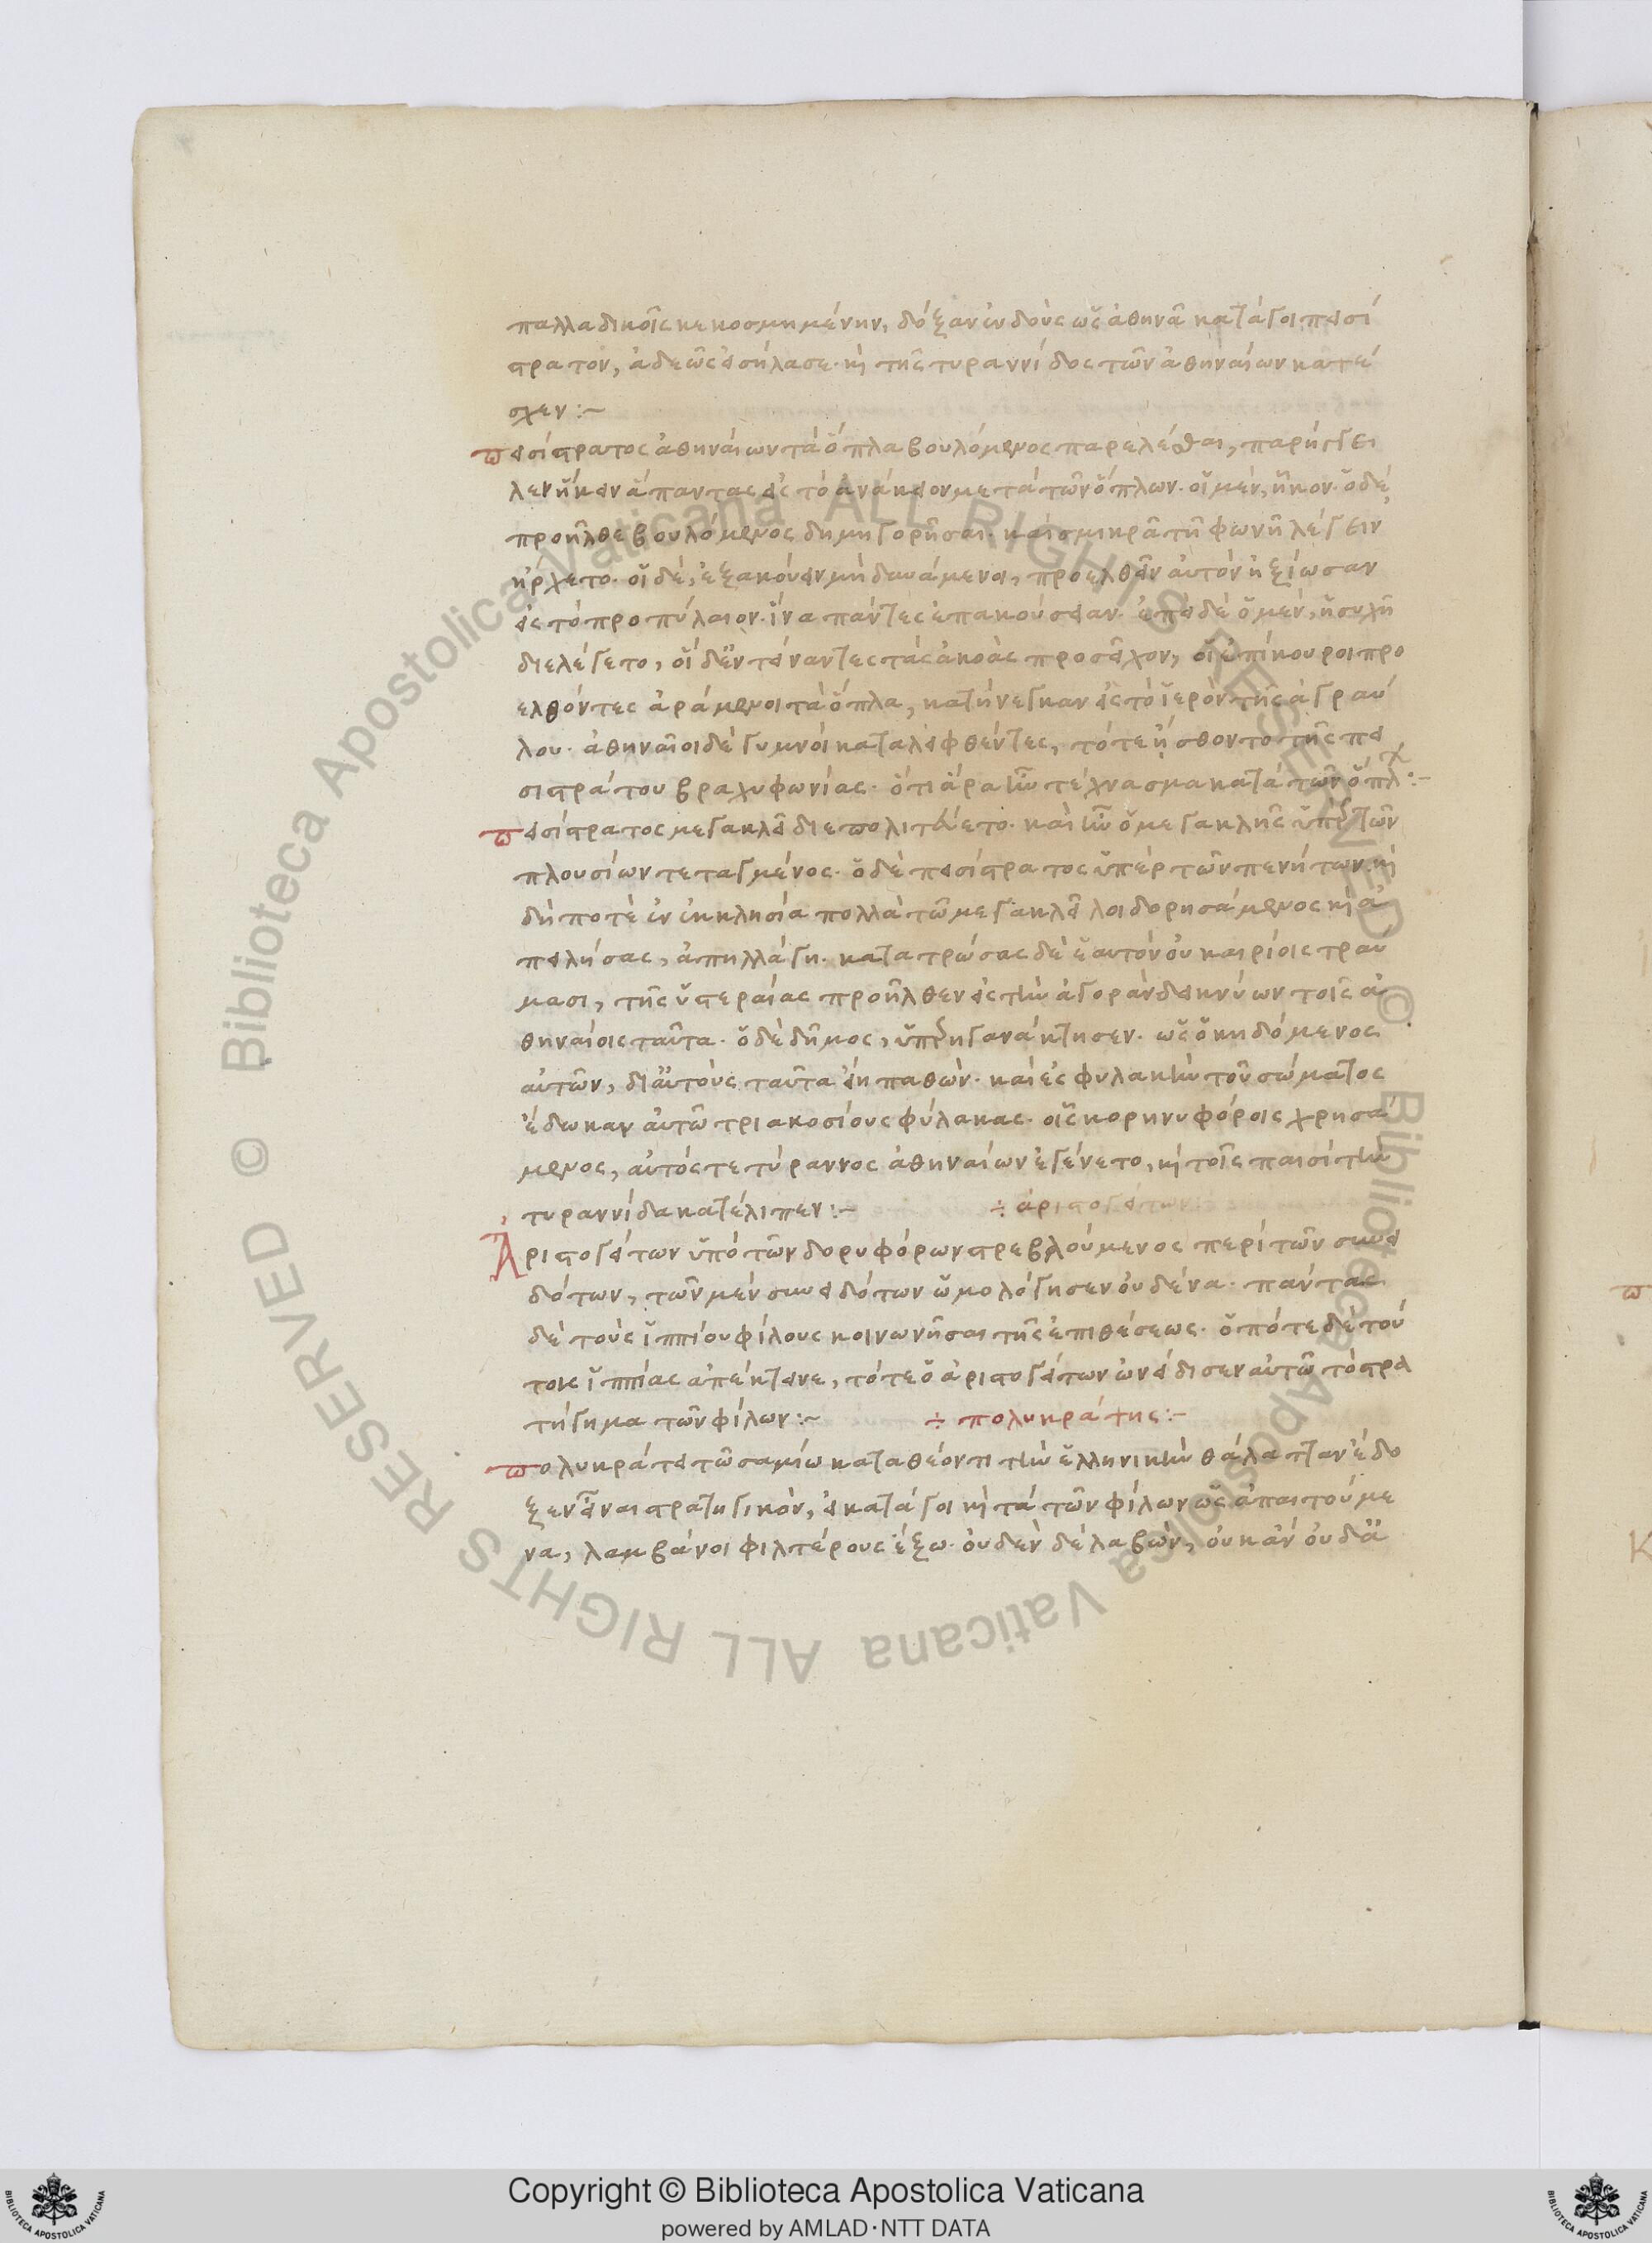 παλλαδικοῖς κεκοσμημένην, δόξαν ἐνδοὺς ὡς ἀθηνᾶ κατάγοι πεισί
στρατον, ἀδεῶς εἰσήλασε. καὶ τῆς τυραννίδος τῶν ἀθηναίων κατέ
σχεν:~
πεισίστρατος ἀθηναίων τὰ ὅπλα βουλόμενος παρελέσθαι, παρήγγει
λεν ἥκειν ἅπαντας εἰς τὸ ἀνάκειον μετὰ τῶν ὅπλων. οἱ μὲν, ἧκον. ὁ δὲ
προῆλθε βουλόμενος δημηγορῆσαι. καὶ σμικρᾶ τῆ φωνῆ λέγειν
ἤρχετο. οἱ δὲ, ἐξακούειν μὴ δυνάμενοι, προελθεῖν αὐτὸν ἠξίωσαν
εἰς τὸ προπύλαιον. ἵνα πάντες ἐπακούσειαν. ἐπεὶ δὲ ὁ μὲν, ἡσυχῆ
διελέγετο, οἱ δὲ ἐντείναντες τὰς ἀκοὰς προσεῖχον, οἱ ἐπίκουροι προ
ελθόντες ἀράμενοι τὰ ὅπλα, κατήνεγκαν εἰς τὸ ἱερὸν τῆς ἀγραύ
λου. ἀθηναῖοι δὲ γυμνοὶ καταλειφθέντες, τότε ᾔσθοντο τῆς πει
σιστράτου βραχυφωνίας. ὅτι ἄρα ἦν τέχνασμα κατὰ τῶν ὅπλ:~
πεισίστρατος μεγακλεῖ διεπολιτεύετο. καὶ ἦν ὁ μεγακλῆς ὑπὲρ τῶν
πλουσίων τεταγμένος. ὁ δὲ πεισίστρατος ὑπὲρ τῶν πενήτων. καὶ
δή ποτὲ ἐν ἐκκλησία πολλὰ τῶ μεγακλεῖ λοιδορησάμενος καὶ ἀ
πειλήσας, ἀπηλλάγη. κατατρώσας δὲ ἑαυτὸν οὐ καιρίοις τραύ
μασι, τῆς ὑστεραίας προῆλθεν εἰς τὴν ἀγορὰν δεικνύων τοῖς ἀ
θηναίοις ταῦτα. ὁ δὲ δῆμος, ὑπερηγανάκτησεν. ὡς ὁ κηδόμενος
αὐτῶν, δι' αὐτοὺς ταῦτα εἴη παθὼν. καὶ ἐς φυλακὴν τοῦ σώματος
ἔδωκαν αὐτῶ τριακοσίους φύλακας. οἷς κορηνυφόροις χρησά
μενος, αὐτός τε τύραννος ἀθηναίων ἐγένετο, καὶ τοῖς παισὶ τὴν
τυραννίδα κατέλιπεν:~ ÷ ἀριστογείτων
Ἀριστογείτων ὑπὸ τῶν δορυφόρων στρεβλούμενος περὶ τῶν συνει
δότων, τῶν μὲν συνειδότων ὡμολόγησεν οὐδένα. πάντας
δὲ τοὺς ἱππίου φίλους κοινωνῆσαι τῆς ἐπιθέσεως. ὁπότε δὲ τού
τοις ἱππίας ἀπέκτεινε, τότε ὁ ἀριστογείτων ὠνείδισεν αὐτῶ τὸ στρα
τήγημα τῶν φίλων:~ ÷ πολυκράτης:~
πολυκράτει τῶ σαμίω καταθέοντι τὴν ἑλληνικὴν θάλατταν ἔδο
ξεν εἶναι στρατηγικὸν, εἰ κατάγοι καὶ τὰ τῶν φίλων ὡς ἀπαιτούμε
να, λαμβάνοι φιλτέρους ἕξω. οὐδὲν δὲ λαβὼν, οὐκ ἂν οὐδὲ